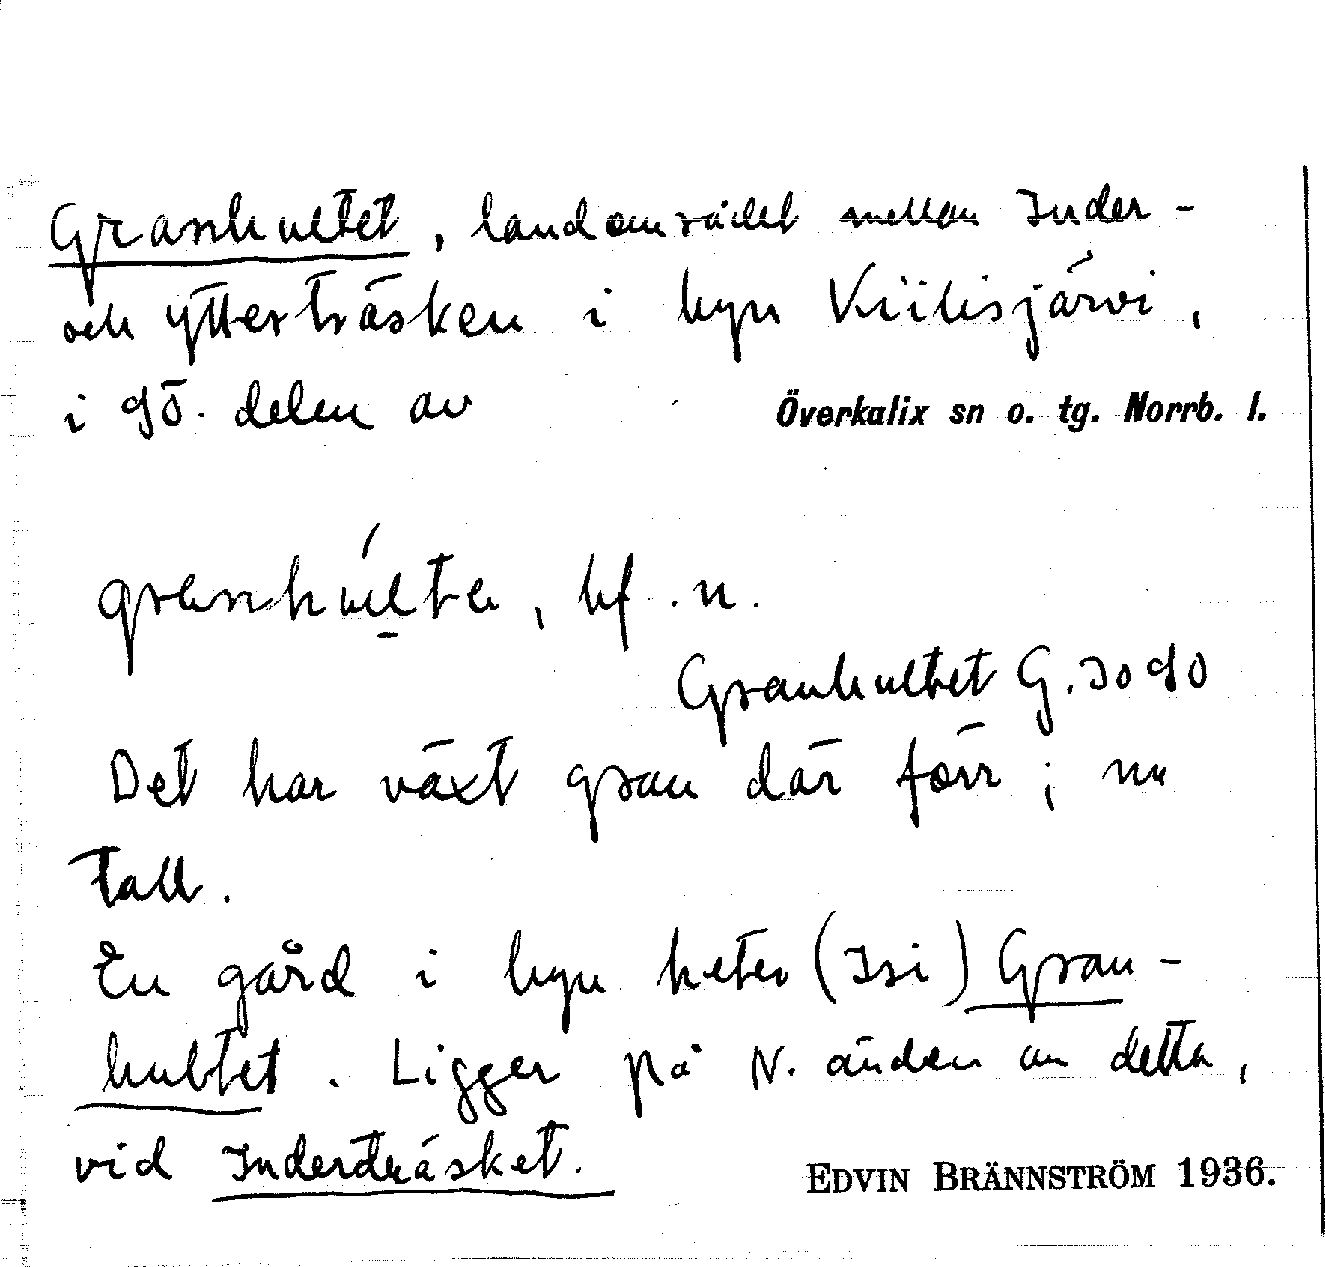 Granhultet, landområdet mellan Inder-
och ytterträsken i byn Kiilisjärvi,
i sö. delen av Överkalix sn o. tg. Norrb. l.
granhúlte, bf. n.
Granhultet G.
Det har växt gran där förr; nu
tall.
En gård i byn heter (Isi) Gran-
hultet. Ligger på N. änden av detta,
vid Inderträsket.
EDVIN BRÄNNSTRÖM 1936.